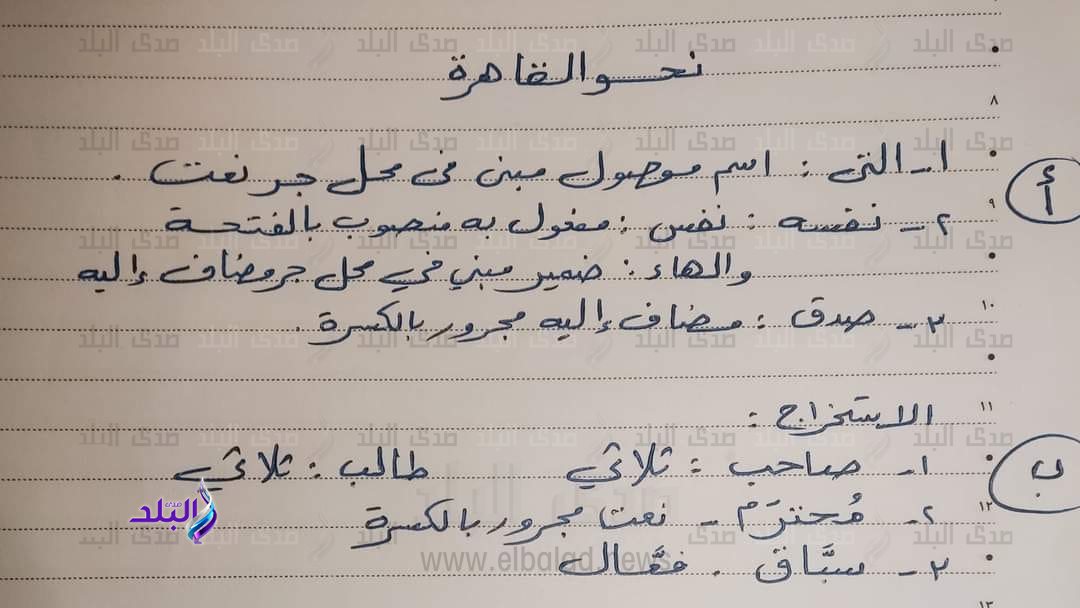 نحو القاهرة
٨
أ
١- التى : اسم موصول مبنى فى محل جر نعت .
٩
٢- نفسه : نفس : مفعول به منصوب بالفتحة
والهاء : ضمير مبني في محل جر مضاف إليه
١٠
٣- صدق : مضاف إليه مجرور بالكسرة .
١١
الاستخراج :
ب
١- صاحب : ثلاثي طالب : ثلاثي
١٢
٢- مُحترَم - نعت مجرور بالكسرة
صدى البلد
٣- سبَّاق . فعَّال
www.elbalad.news
١٣